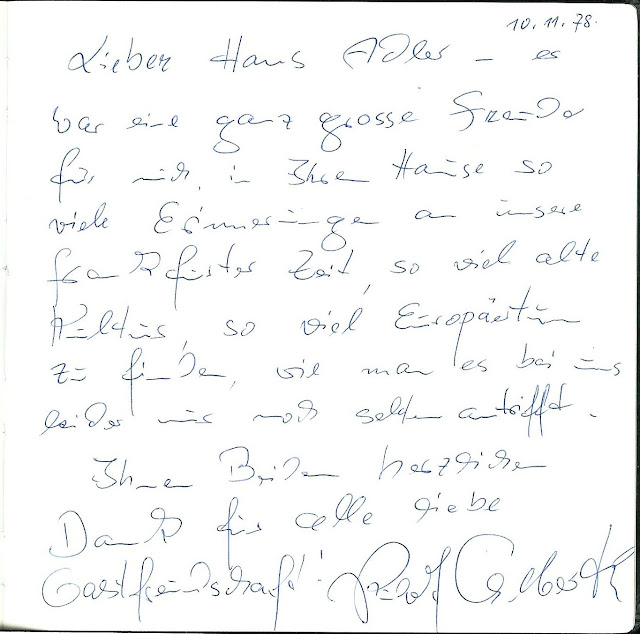 10.11.78.
Lieber Hans Adler – es
war eine ganz grosse Freude
für mich, in Ihrem Hause so
viele Erinnerungen an unsere
Frankfurter Zeit, so viel alte
Kultur, so viel Europäertum
zu finden, wie man es bei uns
leider nur noch selten antrifft.
Ihnen Beiden herzlichen
Dank für alle liebe
Gastfreundschaft!